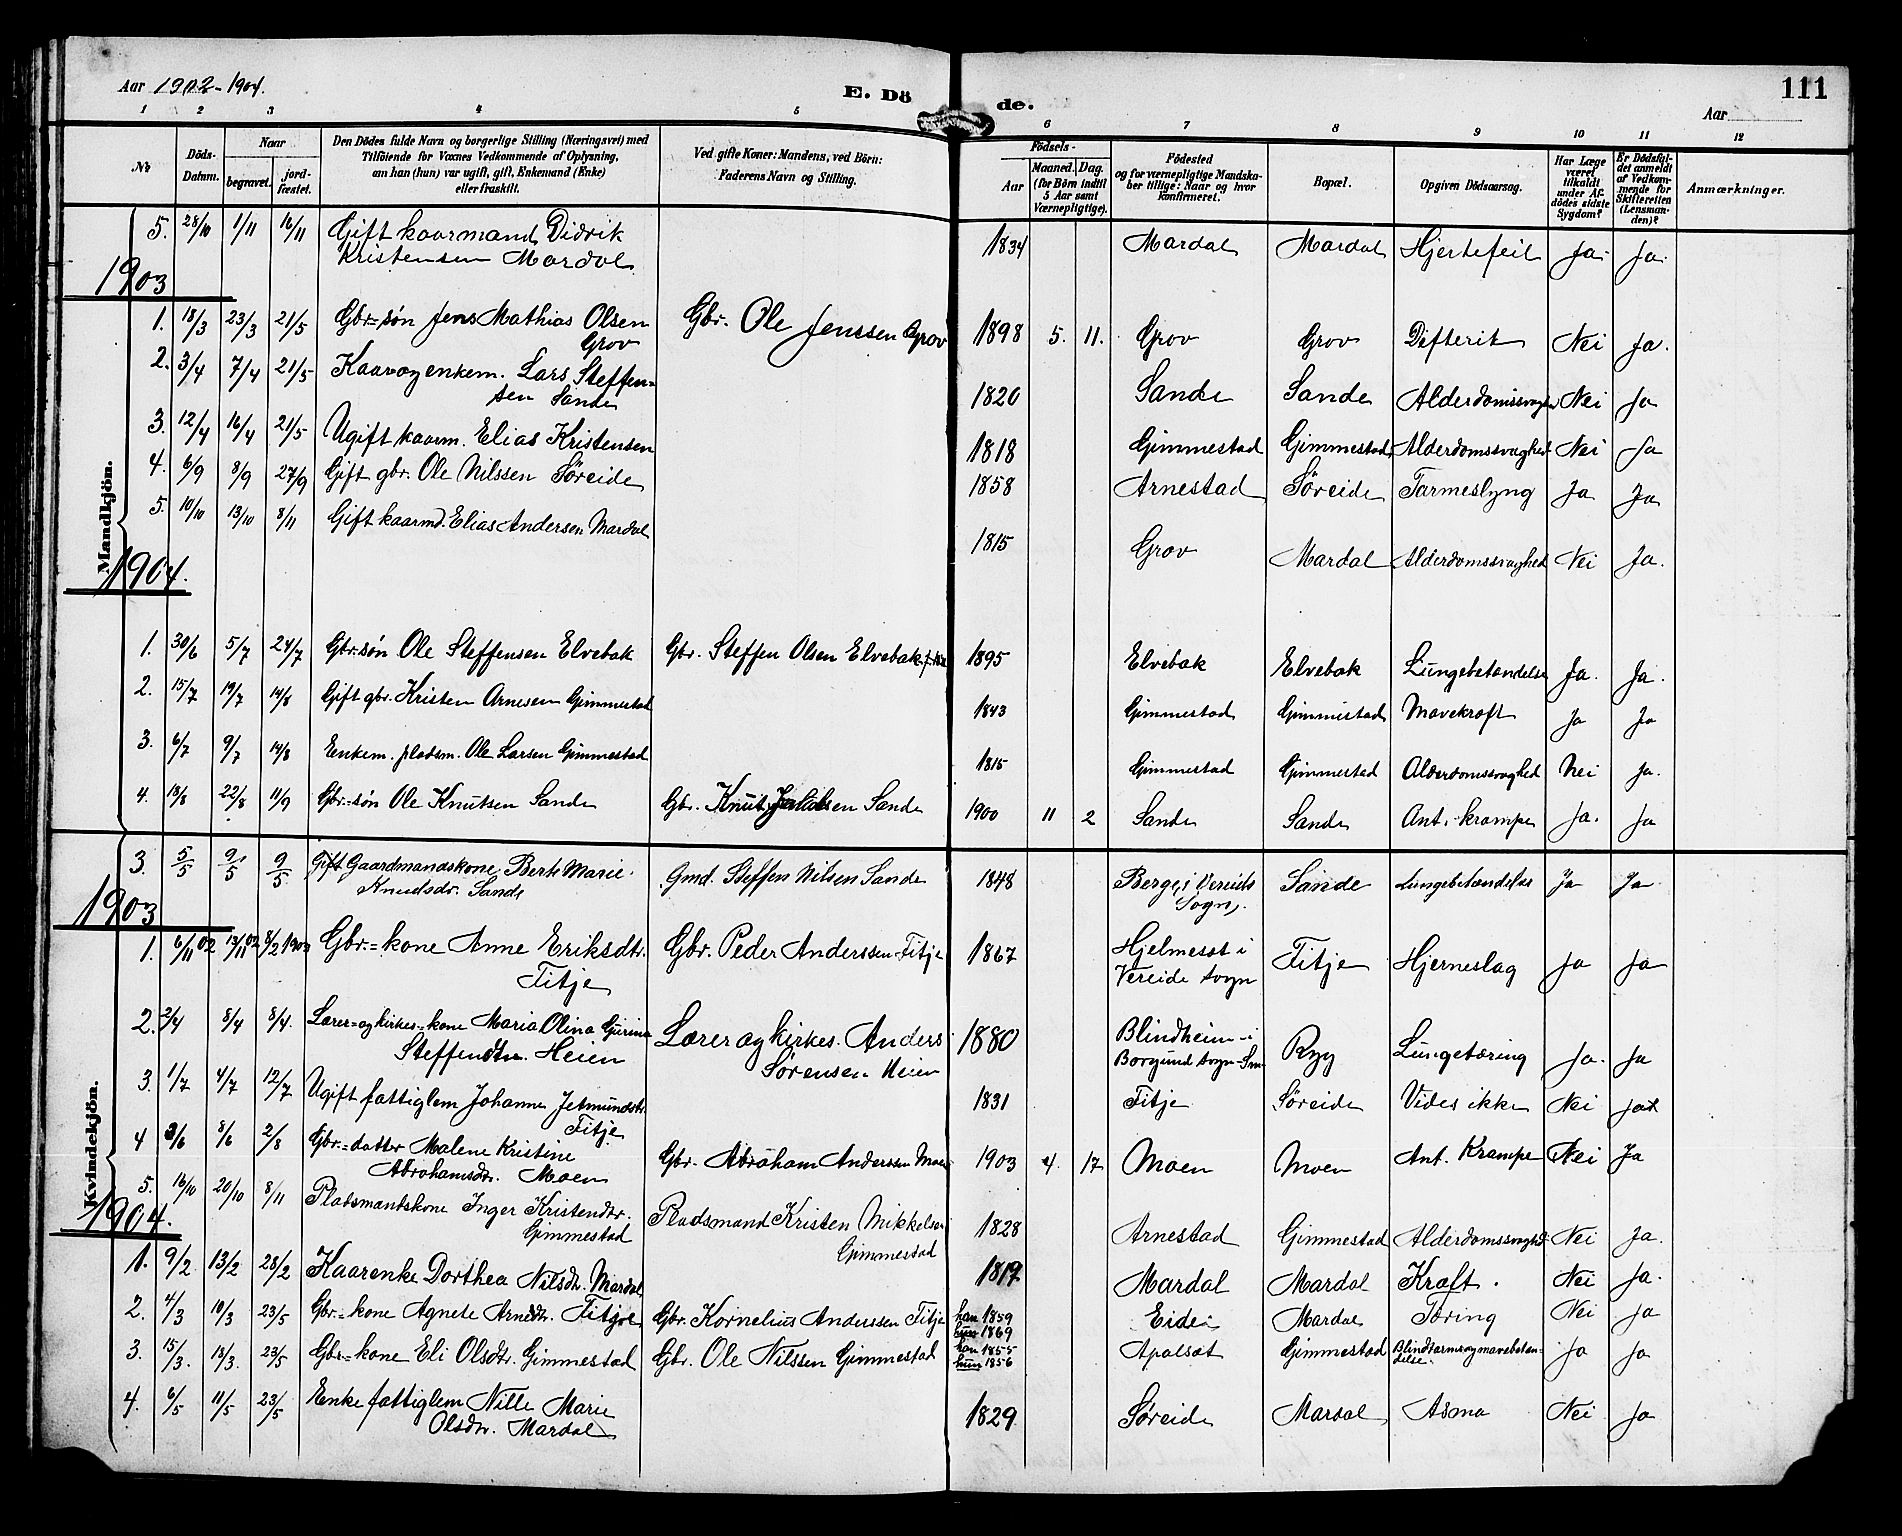 Aar 1902-1904.
E. Döde.
111
Aar
1 2 3 4 5 6 7 8 9 10 11 12
No
Döds-Datum.
Naar
begravet.
jord-fæstet.
Den Dödes fulde Navn og borgerlige Stilling (Næringsvei) med
Tilföiende for Voxnes Vedkommende af Oplysning,
om han (hun) var ugift, gift, Enkemand (Enke)
eller fraskilt.
Ved gifte Koner: Mandens, ved Börn:
Faderens Navn og Stilling.
Födsels-
Aar
Maaned. Dag.
(for Börn indtil
5 Aar samt
Værnepligtige).
Födested
og for værnepligtige Mandska-
ber tillige: Naar og hvor
konfirmeret.
Bopæl.
Opgiven Dödsaarsag.
Har Læge
været
tilkaldt
under Af-
dödes sidste
Sygdom?
Er Dödsfal-
det anmeldt
af Vedkom-
mende for
Skifteretten
(Lensman-
den)?
Anmærkninger.
Mandkjön.
5. 28/10 1/11 16/11 Gift kaarmand Didrik 1834 Mardal Mardal Hjertefeil Ja. Ja.
Kristensen Mardal
1903
1. 18/3 23/3 21/5 Gbr=søn Jens Mathias Olsen Gbr. Ole Jenssen Grov 1898 5. 11. Grov Grov Difterit Nei Ja.
Grov
2. 3/4 7/4 21/5 Kaarogenkem. Lars Steffen= 1820 Sande Sande Alderdomssvaghed Nei Ja
sen Sande
3. 12/4 16/4 21/5 Ugift kaarm. Elias Kristensen 1818 Gimmestad Gimmestad Alderdomssvaghed Nei Ja
4. 6/9 8/9 27/9 Gift gbr. Ole Nilssen Søreide 1858 Arnestad Søreide Tarmeslyng Ja Ja
5. 10/10 13/10 8/11 Gift kaarmd. Elias Andersen Mardal 1815 Grov Mardal Alderdomssvaghed Nei Ja.
1904.
1. 30/6 5/7 24/7 Gbr.søn Ole Steffensen Elvebak Gbr. Steffen Olsen Elvebak 1895 Elvebak Elvebak Lungebetændelse Ja. Ja.
2. 15/7 19/7 14/8 Gift gbr. Kristen Arnesen Gimmestad 1843 Gimmestad Gimmestad Mavekraft Ja Ja
3. 6/7 9/7 14/8 Enkem. pladsm. Ole Larsen Gimmestad 1815 Gimmestad Gimmestad Alderdomssvaghed Nei Ja.
4. 18/8 22/8 11/9 Gbr.=søn Ole Knutsen Sande Gbr. Knut Jakobsen Sande 1900 11 2 Sande Sande Ant. krampe Ja. Ja
Kvindekjön.
3. 5/5 9/5 9/5 Gift Gaardmandskone Berte Marie Gmd. Steffen Nilsen Sande 1848 Berge, i Vereids Sande Lungebetændelse Ja Ja
Knudsdr. Sande Sogn,
1903
1. 6/11 02 13/11 02 8/2 1903 Gbr.=kone Anne Eriksdtr. Gbr. Peder Anderssen Fitje 1867 Hjelmeset i Fitje Hjerneslag Ja Ja
Fitje Vereide sogn
2. 2/4 8/4 8/4. Lærer=og kirkes=kone Maria Olina Gurina Lærer og kirkes. Anders 1880 Blindheim i Ryg Lungetæring Ja. Ja
Steffendtr. Heien Sørensen Heien Borgund sogn
3. 1/7 4/7 12/7 Ugift fattiglem Johanne Jetmundsdtr. 1831 Fitje Søreide Vides ikke Nei Ja
Fitje
4 3/6 8/6 2/8 Gbr.=datter Malene Kristine Gbr. Abraham Anderssen Moen 1903 4. 17 Moen Moen Ant. Krampe Nei Ja
Abrahamsdtr. Moen
5. 16/10 20/10 8/11 Pladsmandskone Inger Kristendtr. Pladsmand Kristen Mikkelsen 1828 Arnestad Gimmestad Alderdomssvaghed Nei Ja.
Gimmestad Gimmestad
1904.
1. 9/2 13/2 28/2 Kaarenke Dorthea Nilsdtr. Mardal 1819 Mardal Mardal Kræft. Nei Ja.
2. 4/3 10/3 23/5 Gbr.=kone Agnete Arnedtr. Fitje Gbr. Kornelius Anderssen Fitje han 1859 Eide Mardal Tæring Nei Ja
hun 1869
3. 15/3. 18/3. 23/5 Gbr.=kone Eli Olsdtr. Gimmestad Gbr. Ole Nilssen Gimmestad han 1855 Apalset Gimmestad Blindtarmsogmavebetæn- Ja Ja
hun 1856 delse.
4. 6/5 11/5 23/5 Enke fattiglem Nille Marie 1829 Søreide Mardal Asma Nei Ja
Olsdtr. Mardal